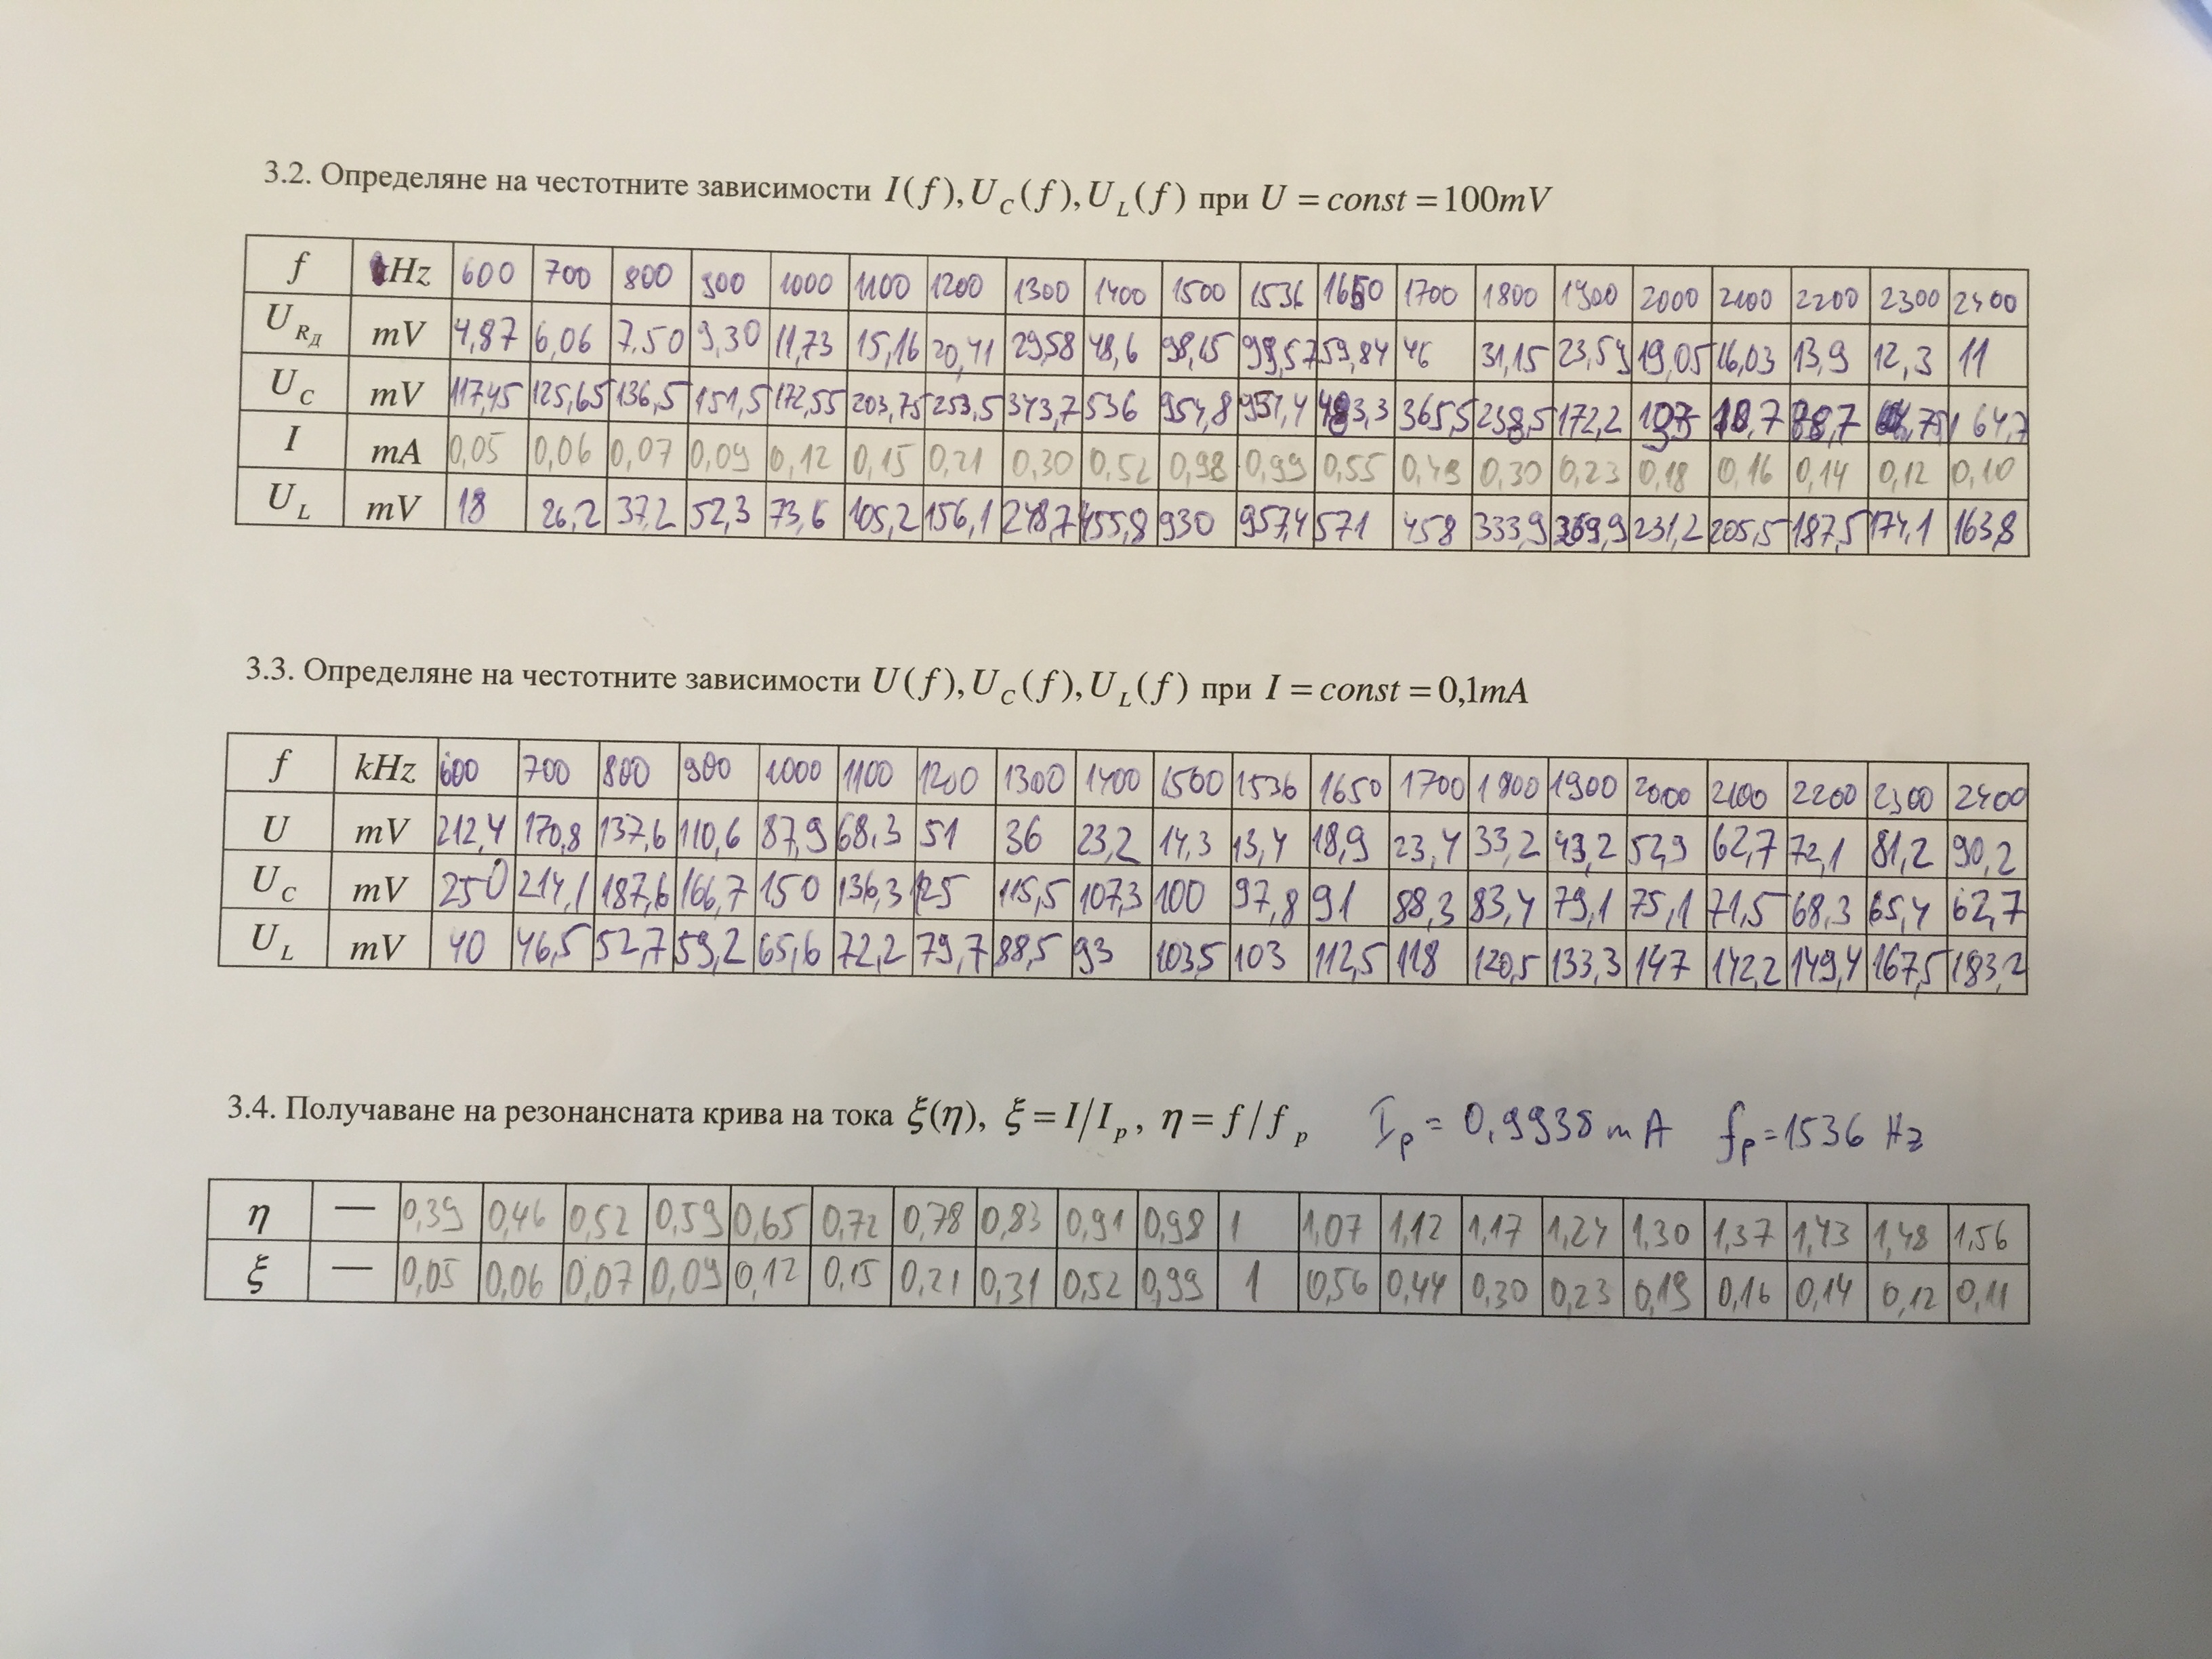 3.2. Определяне на честотните зависимости I(f), U_C(f), U_L(f) при U = const = 100mV
f Hz 600 700 800 900 1000 1100 1200 1300 1400 1500 1536 1650 1700 1800 1900 2000 2100 2200 2300 2400
U_RД mV 4,87 6,06 7.50 9,30 11,73 15,16 20,41 29,58 48,6 98,15 99,57 59,84 46 31,15 23,59 19,05 16,03 13,9 12,3 11
U_C mV 117,45 125,65 136,5 151,5 172,55 203,75 253,5 343,7 536 954,8 951,4 483,3 365,5 238,5 172,2 64,7
I mA 0,05 0,06 0,07 0,09 0,12 0,15 0,21 0,30 0,52 0,98 0,99 0,55 0,49 0,30 0,23 0,18 0,16 0,14 0,12 0,10
U_L mV 18 26,2 37,2 52,3 73,6 105,2 156,1 248,7 455,8 930 957,4 571 458 333,9 269,9 231,2 205,5 187,5 174,1 163,8
3.3. Определяне на честотните зависимости U(f), U_C(f), U_L(f) при I = const = 0,1mA
f kHz 600 700 800 900 1000 1100 1200 1300 1400 1500 1536 1650 1700 1800 1900 2000 2100 2200 2300 2400
U mV 212,4 170,8 137,6 110,6 87,9 68.3 51 36 23,2 14,3 13,4 18,9 23,4 33,2 43,2 52,9 62,7 72,1 81,2 90,2
U_C mV 250 214,1 187,6 166,7 150 136,3 125 115,5 107,3 100 97,8 91 88,3 83,4 79,1 75,1 71,5 68,3 65,4 62,7
U_L mV 40 46,5 52,7 59,2 65,6 72,2 79,7 88,5 93 103,5 103 112,5 118 120,5 133,3 147 142,2 149,4 167,5 183,2
3.4. Получаване на резонансната крива на тока ξ(η), ξ = I/I_p, η = f/f_p I_p = 0,9938 mA f_p = 1536 Hz
η — 0,39 0,46 0,52 0,59 0,65 0,72 0,78 0,83 0,91 0,98 1 1,07 1,12 1,17 1,24 1,30 1,37 1,43 1,48 1,56
ξ — 0,05 0,06 0,07 0,09 0,12 0,15 0,21 0,31 0,52 0,99 1 0,56 0,44 0,30 0,23 0,19 0,16 0,14 0,12 0,11